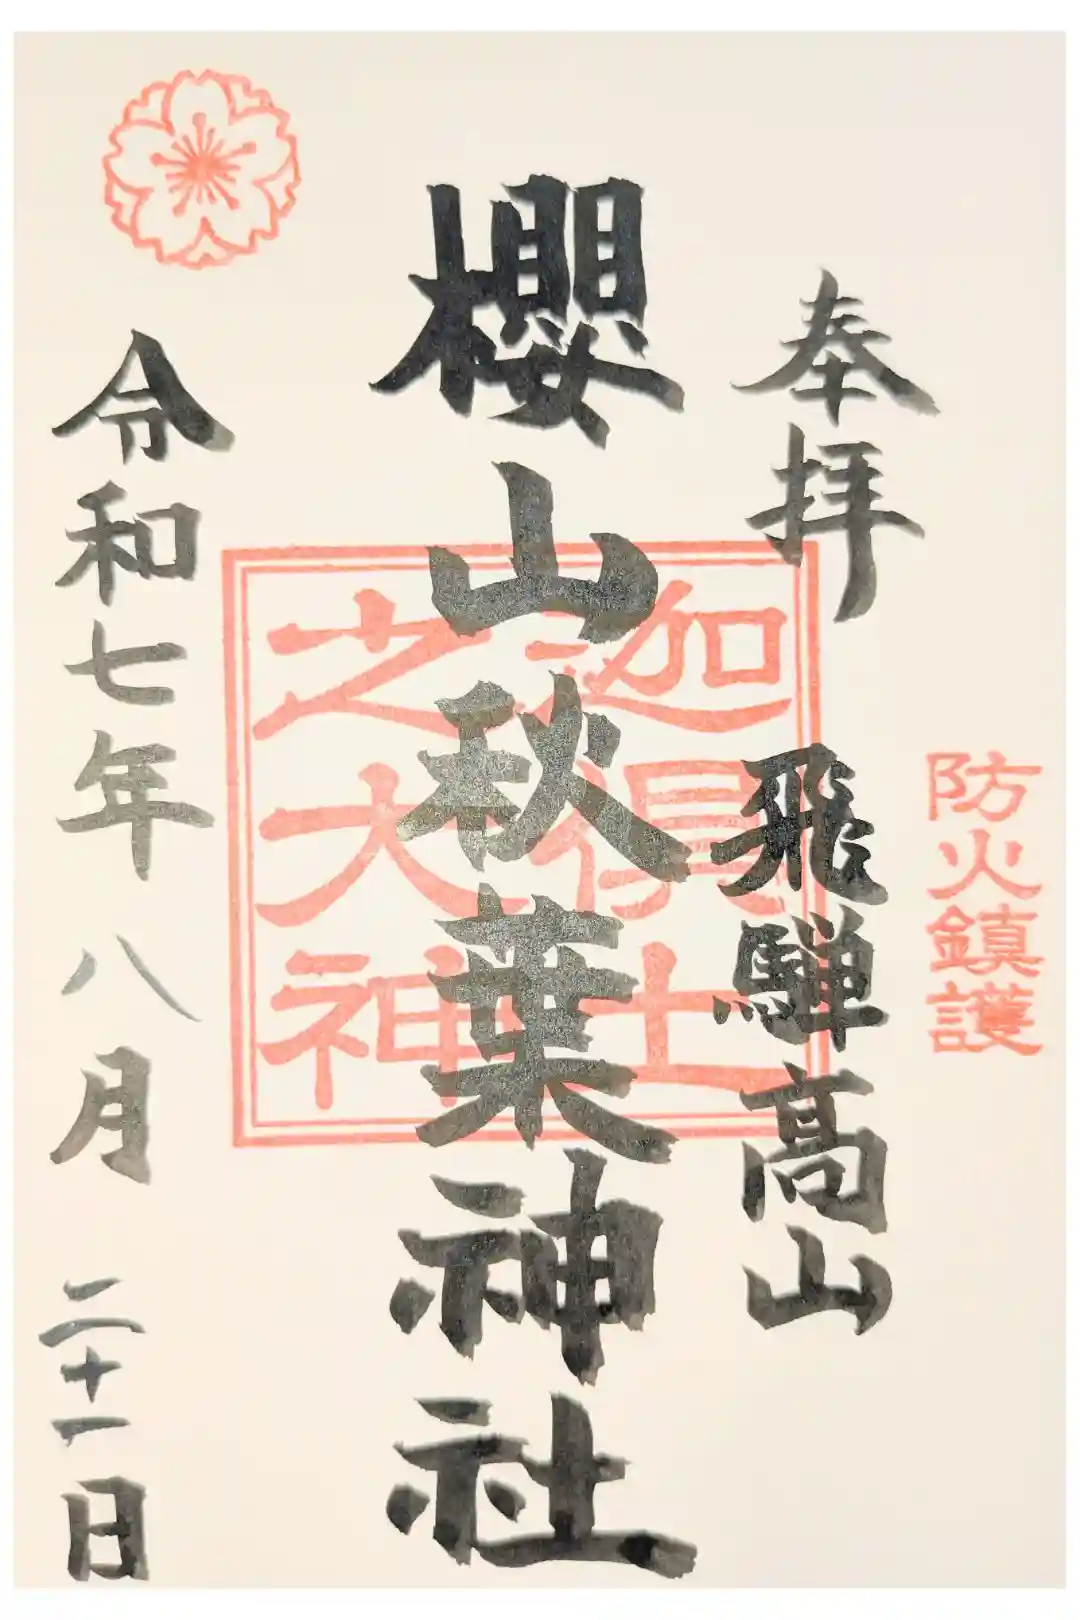 防火鎮護
奉拝
飛騨高山
櫻山秋葉神社
迦具土
之大神
令和七年八月二十一日